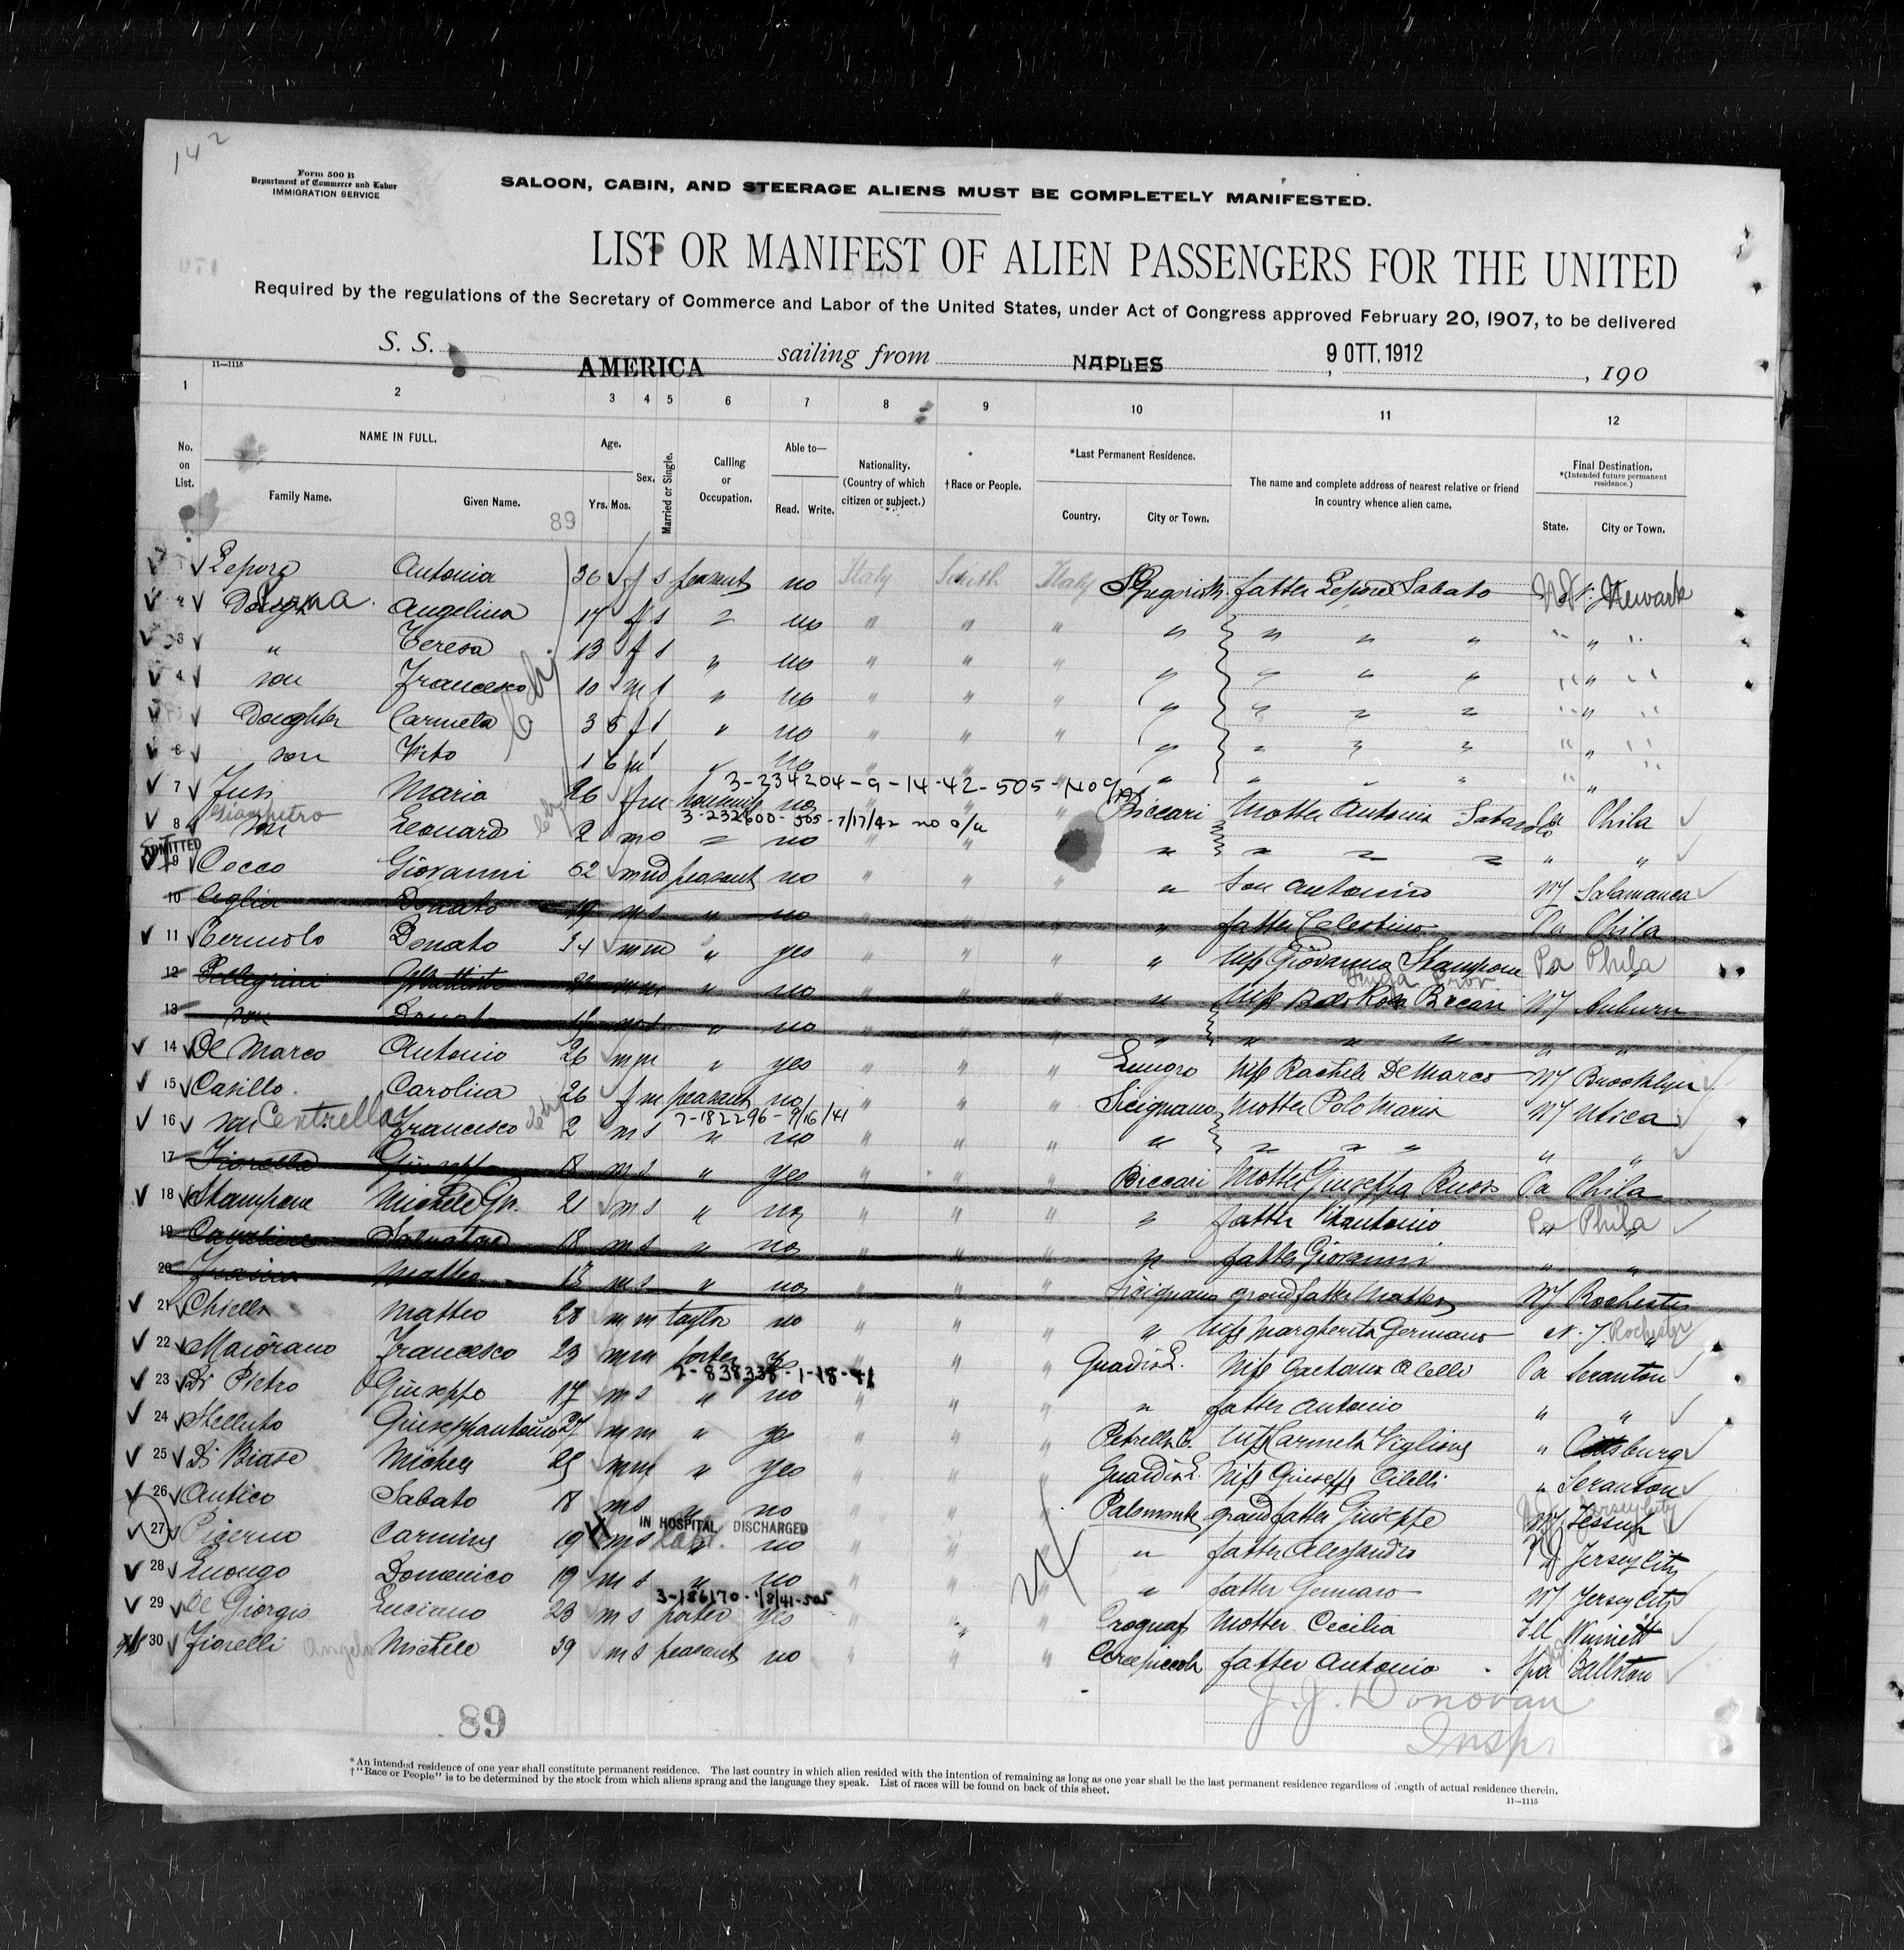 14 2
Form 500 B
Department of Commerce and Labor
IMMIGRATION SERVICE
SALOON, CABIN, AND STEERAGE ALIENS MUST BE COMPLETELY MANIFESTED.
LIST OR MANIFEST OF ALIEN PASSENGERS FOR THE UNITED
Required by the regulations of the Secretary of Commerce and Labor of the United States, under Act of Congress approved February 20, 1907, to be delivered
S. S. AMERICA sailing from NAPLES 9 OTT. 1912, 190
11—1115
1 2 3 4 5 6 7 8 9 10 11 12
No. on List. NAME IN FULL. Family Name. Given Name. Age. Yrs. Mos. Sex. Married or Single. Calling or Occupation. Able to— Read. Write. Nationality. (Country of which citizen or subject.) †Race or People. *Last Permanent Residence. Country. City or Town. The name and complete address of nearest relative or friend in country whence alien came. Final Destination. *(Intended future permanent residence.) State. City or Town.
89
Lepore Antonia 36 f s peasant no Italy South Italy father Lepore Sabato N. J. Newark
2 Angelina 17 f s " no " " " " " " " " "
3 " Teresa 13 f s " no " " " " " " " " "
4 son Francesco 10 m s " no " " " " " " " " "
Doughter Carmela 3 5 f s " no " " " " " " " " "
6 son Vito 1 6 m s " no " " " " " " " "
3-234204-9-14-42-505-No
7 Maria 26 f m housewife no " " " Biccari Mother Antonia Pa Phila
Giampietro
3-232600-505-7/17/42 no o/a
8 son Leonard 2 m s " no " " " " " " " " "
ADMITTED
9 Cocco Giovanni 62 m wd peasant no " " " " son Antonio NY Salamanca
10 Ceglia Donato 19 m s " no " " " " father Celestino Pa Phila
11 Donato 34 m m " yes " " " " Wife Giovanna Stampone Pa Phila
12 Pellegrini m m " no " " " " Wife Rosa Biccari NY Auburn
13 son Donato m s " no " " " " " " " " "
14 De Marco Antonio 26 m m " yes " " " Wife Rachele De Marco NY Brooklyn
15 Casillo Carolina 26 f m peasant no " " " Sicignano Mother Polo Maria NY Utica
7-182296-9/16/41
16 son Centrella Francesco 2 m s " no " " " " " " " " "
17 Fiorella Giuseppe 18 m s " yes " " " Biccari Mother Giuseppa Russo Pa Phila
18 Stampone Michele Gn. 21 m s " no " " " " father Vitantonio Pa Phila
19 Cavaliere Salvatore 18 m s " no " " " " father Giovanni " "
20 Matteo m s " no " " " Sicignano grandfather Matteo NY Rochester
21 Chiella Matteo 28 m m taylor no " " " " Wife Margherita Germano N. Y. Rochester
22 Maiorano Francesco 23 m m porter " " " Guardia L. Wife Gaetana Pa Scranton
2-838338-1-18-41
23 Di Pietro Giuseppe 17 m s " no " " " " father Antonio " "
24 Stelluto Giuseppantonio 27 m m " yes " " " Petrella Wife Carmela Viglione " Pittsburg
25 Di Biase Michele 25 m m " yes " " " Guardia L. Wife Giuseppa Cilelli " Scranton
26 Antico Sabato 18 m s " no " " " Palomonte grandfather Giuseppe Jessup Jersey City
IN HOSPITAL DISCHARGED
27 Picerno Carmine 19 m s " no " " " " father Alessandro NJ Jersey City
28 Luongo Domenico 19 m s " no " " " " father Gennaro NY Jersey City
3-186170-1/8/41-505
29 De Giorgio Luciano 23 m s porter yes " " " Mother Cecilia Ill
30 Fiorelli Angelo Michele 39 m s peasant no " " " father Antonio Spa Ballston
J. J. Donovan
Insp.
89
*An intended residence of one year shall constitute permanent residence. The last country in which alien resided with the intention of remaining as long as one year shall be the last permanent residence regardless of length of actual residence therein.
†"Race or People" is to be determined by the stock from which aliens sprang and the language they speak. List of races will be found on back of this sheet.
11—1115